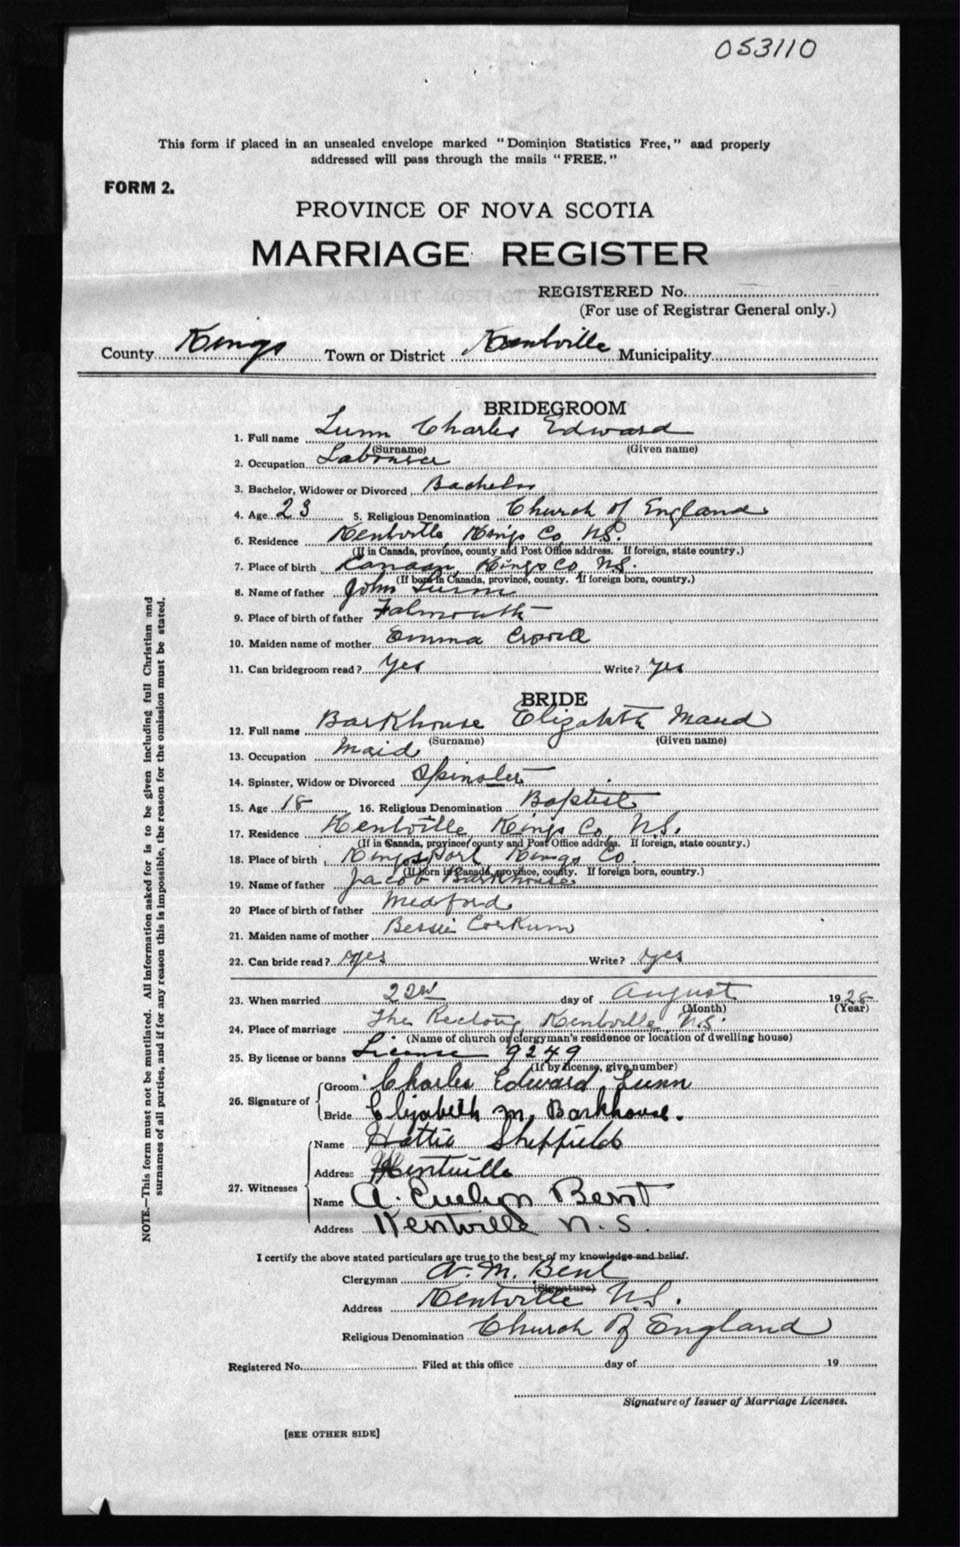 053110
This form if placed in an unsealed envelope marked "Dominion Statistics Free," and properly
addressed will pass through the mails "FREE."
FORM 2.
PROVINCE OF NOVA SCOTIA
MARRIAGE REGISTER
REGISTERED No.
(For use of Registrar General only.)
County Kings Town or District Kentville Municipality
BRIDEGROOM
1. Full name Lunn Charles Edward
(Surname) (Given name)
2. Occupation Labourer
3. Bachelor, Widower or Divorced Bachelor
4. Age 23 5. Religious Denomination Church of England
6. Residence Kentville Kings Co. N.S.
(If in Canada, province, county and Post Office address. If foreign, state country.)
7. Place of birth Canaan, Kings Co, N.S.
(If born in Canada, province, county. If foreign born, country.)
8. Name of father John Lunn
9. Place of birth of father Falmouth
10. Maiden name of mother Emma Crowell
11. Can bridegroom read? Yes Write? Yes
BRIDE
12. Full name Barkhouse Elizabeth Maud
(Surname) (Given name)
13. Occupation Maid
14. Spinster, Widow or Divorced Spinster
15. Age 18 16. Religious Denomination Baptist
17. Residence Kentville Kings Co, N.S.
(If in Canada, province, county and Post Office address. If foreign, state country.)
18. Place of birth Kingsport, Kings Co.
(If born in Canada, province, county. If foreign born, country.)
19. Name of father Jacob Barkhouse
20 Place of birth of father Medford
21. Maiden name of mother Bessie Corkum
22. Can bride read? Yes Write? Yes
23. When married 22nd day of August 1928
(Month) (Year)
24. Place of marriage The Rectory, Kentville N.S.
(Name of church or clergyman's residence or location of dwelling house)
25. By license or banns License 9249
(If by license, give number)
26. Signature of
Groom Charles Edward Lunn
Bride Elizabeth M. Barkhouse.
27. Witnesses
Name Hattie Sheffield
Address Kentville
Name A. Evelyn Bent
Address Kentville N.S.
I certify the above stated particulars are true to the best of my knowledge and belief.
Clergyman A. M. Bent
(Signature)
Address Kentville N.S.
Religious Denomination Church of England
Registered No. Filed at this office day of 19
Signature of Issuer of Marriage Licenses.
[SEE OTHER SIDE]
NOTE.—This form must not be mutilated. All information asked for is to be given including full Christian and
surnames of all parties, and if for any reason this is impossible, the reason for the omission must be stated.